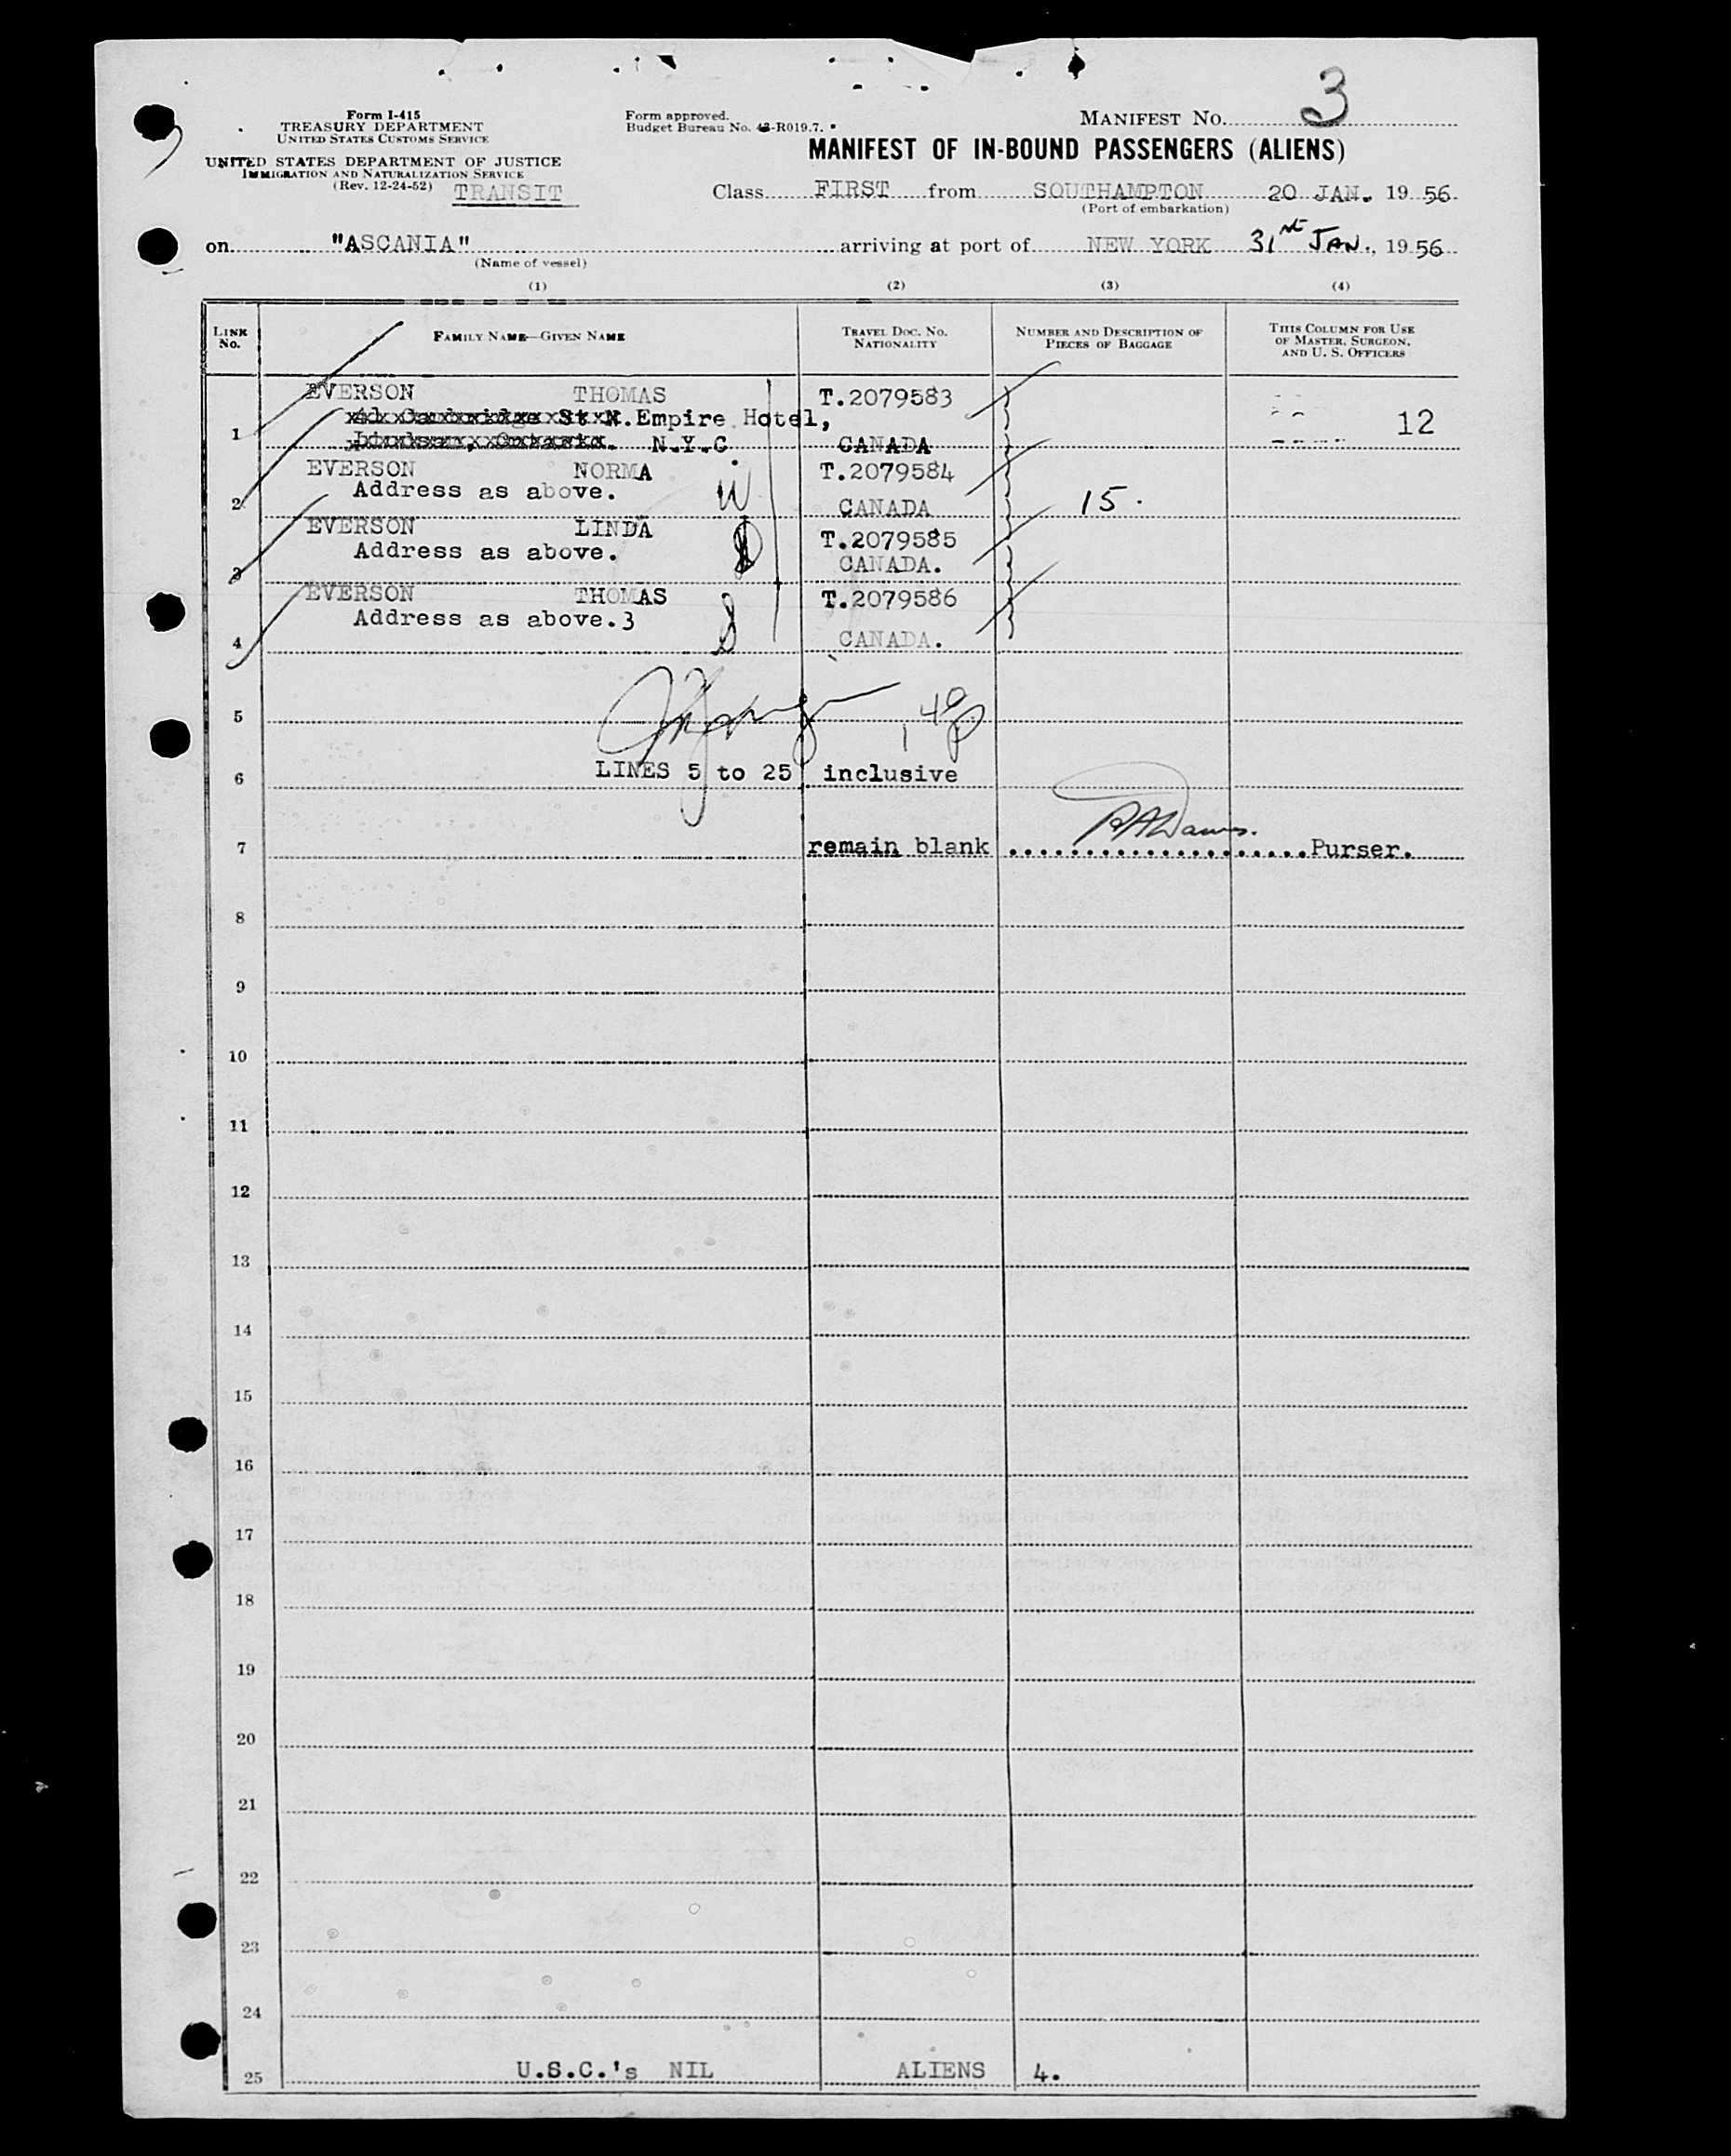 Form I-415
TREASURY DEPARTMENT
UNITED STATES CUSTOMS SERVICE
UNITED STATES DEPARTMENT OF JUSTICE
IMMIGRATION AND NATURALIZATION SERVICE
(Rev. 12-24-52) TRANSIT
Form approved.
Budget Bureau No. 43-R019.7.
MANIFEST No. 3
MANIFEST OF IN-BOUND PASSENGERS (ALIENS)
Class FIRST from SOUTHAMPTON 20 JAN. 1956
(Port of embarkation)
on "ASCANIA" arriving at port of NEW YORK 31st JAN., 1956
(Name of vessel)
(1) (2) (3) (4)
LINE No. FAMILY NAME—GIVEN NAME TRAVEL DOC. NO. NATIONALITY NUMBER AND DESCRIPTION OF PIECES OF BAGGAGE THIS COLUMN FOR USE OF MASTER, SURGEON, AND U. S. OFFICERS
EVERSON THOMAS T.2079583
St N. Empire Hotel, 12
1 N.Y.C CANADA
EVERSON NORMA T.2079584
Address as above. W
2 CANADA 15.
EVERSON LINDA T.2079585
Address as above.
3 CANADA.
EVERSON THOMAS T.2079586
Address as above.3 S
4 CANADA.
5
6 LINES 5 to 25 inclusive
7 remain blank ....................Purser.
8
9
10
11
12
13
14
15
16
17
18
19
20
21
22
23
24
25 U.S.C.'s NIL ALIENS 4.